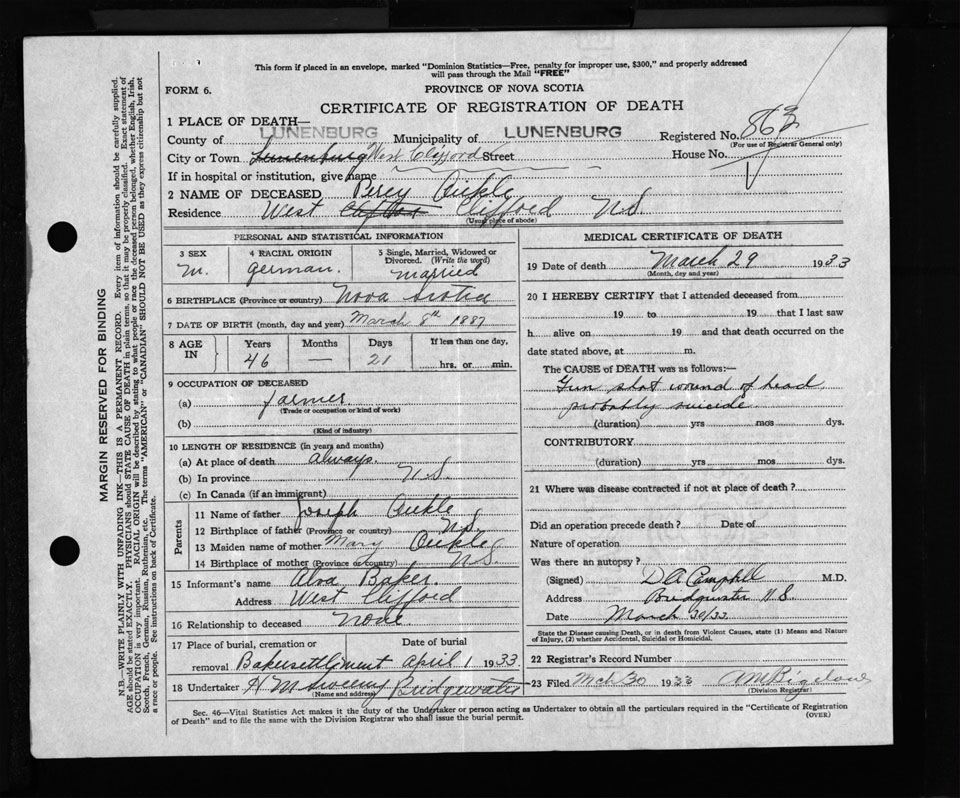 This form if placed in an envelope, marked "Dominion Statistics—Free, penalty for improper use, $300," and properly addressed
will pass through the Mail "FREE"
FORM 6.
PROVINCE OF NOVA SCOTIA
CERTIFICATE OF REGISTRATION OF DEATH
1 PLACE OF DEATH—
County of LUNENBURG Municipality of LUNENBURG Registered No. 863
(For use of Registrar General only)
City or Town Lunenburg West Clifford Street House No.
If in hospital or institution, give name
2 NAME OF DECEASED Percy Oickle
Residence West Clifford N.S.
(Usual place of abode)
PERSONAL AND STATISTICAL INFORMATION
3 SEX 4 RACIAL ORIGIN 5 Single, Married, Widowed or
Divorced. (Write the word)
M. German. Married
6 BIRTHPLACE (Province or country) Nova Scotia
7 DATE OF BIRTH (month, day and year) March 8th 1887
8 AGE IN Years Months Days If less than one day,
46 — 21 hrs. or min.
9 OCCUPATION OF DECEASED
(a) farmer
(Trade or occupation or kind of work)
(b)
(Kind of industry)
10 LENGTH OF RESIDENCE (in years and months)
(a) At place of death always.
(b) In province N.S.
(c) In Canada (if an immigrant)
Parents
11 Name of father Joseph Oickle
12 Birthplace of father (Province or country) N.S.
13 Maiden name of mother Mary Oickle
14 Birthplace of mother (Province or country) N.S.
15 Informant's name Alva Baker.
Address West Clifford
16 Relationship to deceased None
17 Place of burial, cremation or Date of burial
removal Bakersettlement April 1 1933
18 Undertaker H M Sweeny Bridgewater
(Name and address)
MEDICAL CERTIFICATE OF DEATH
19 Date of death March 29 1933
(Month, day and year)
20 I HEREBY CERTIFY that I attended deceased from
19 to 19 that I last saw
h alive on 19 and that death occurred on
date stated above, at m.
The CAUSE of DEATH was as follows:—
Gun shot wound of head
probably suicide
(duration) yrs mos dys.
CONTRIBUTORY
(duration) yrs mos dys.
21 Where was disease contracted if not at place of death?
Did an operation precede death? Date of
Nature of operation
Was there an autopsy?
(Signed) D A Campbell M.D.
Address Bridgewater N.S.
Date March 30/33
State the Disease causing Death, or in death from Violent Causes, state (1) Means and Nature
of Injury, (2) whether Accidental, Suicidal or Homicidal.
22 Registrar's Record Number
23 Filed Mch 30 1933 A M Bigelow
(Division Registrar)
Sec. 46—Vital Statistics Act makes it the duty of the Undertaker or person acting as Undertaker to obtain all the particulars required in the "Certificate of Registration
of Death" and to file the same with the Division Registrar who shall issue the burial permit.
(OVER)
MARGIN RESERVED FOR BINDING
N.B.—WRITE PLAINLY WITH UNFADING INK—THIS IS A PERMANENT RECORD. Every item of information should be carefully supplied.
AGE should be stated EXACTLY. PHYSICIANS should STATE CAUSE OF DEATH in plain terms, so that it may be properly classified. Exact statement of
OCCUPATION is very important. RACIAL ORIGIN will be described by stating to what people or race the deceased person belonged, whether English, Irish,
Scotch, French, German, Russian, Ruthenian, etc. The terms "AMERICAN" or "CANADIAN" SHOULD NOT BE USED as they express citizenship but not
a race or people. See instructions on back of Certificate.